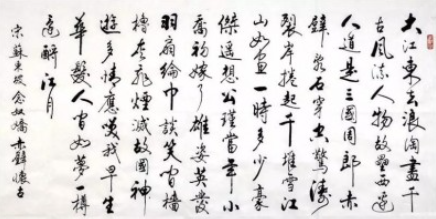 大江東去浪淘盡千
古風流人物故壘西邊
人道是三國周郎赤
壁亂石穿空驚濤
裂岸捲起千堆雪江
山如畫一時多少豪
傑遙想公瑾當年小
喬初嫁了雄姿英發
羽扇綸巾談笑間檣
櫓灰飛煙滅故國神
遊多情應笑我早生
華髮人間如夢一樽
還酹江月
宋蘇東坡念奴嬌赤壁懷古